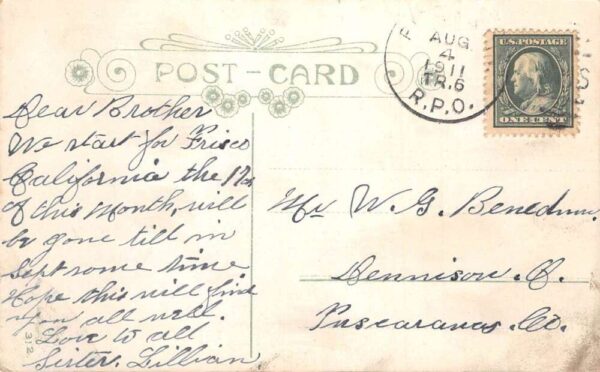 POST-CARD
AUG
4
1911
TR.6
R.P.O.
U.S. POSTAGE
ONE CENT
Dear Brother
We start for Frisco
California the 17th
of this Month, will
be gone till in
Sept some time
Hope this will find
you all well.
Love to all
Sister. Lillian
312
Mr W. G. Benedum.
Dennison. O.
Tuscarawas. Co.